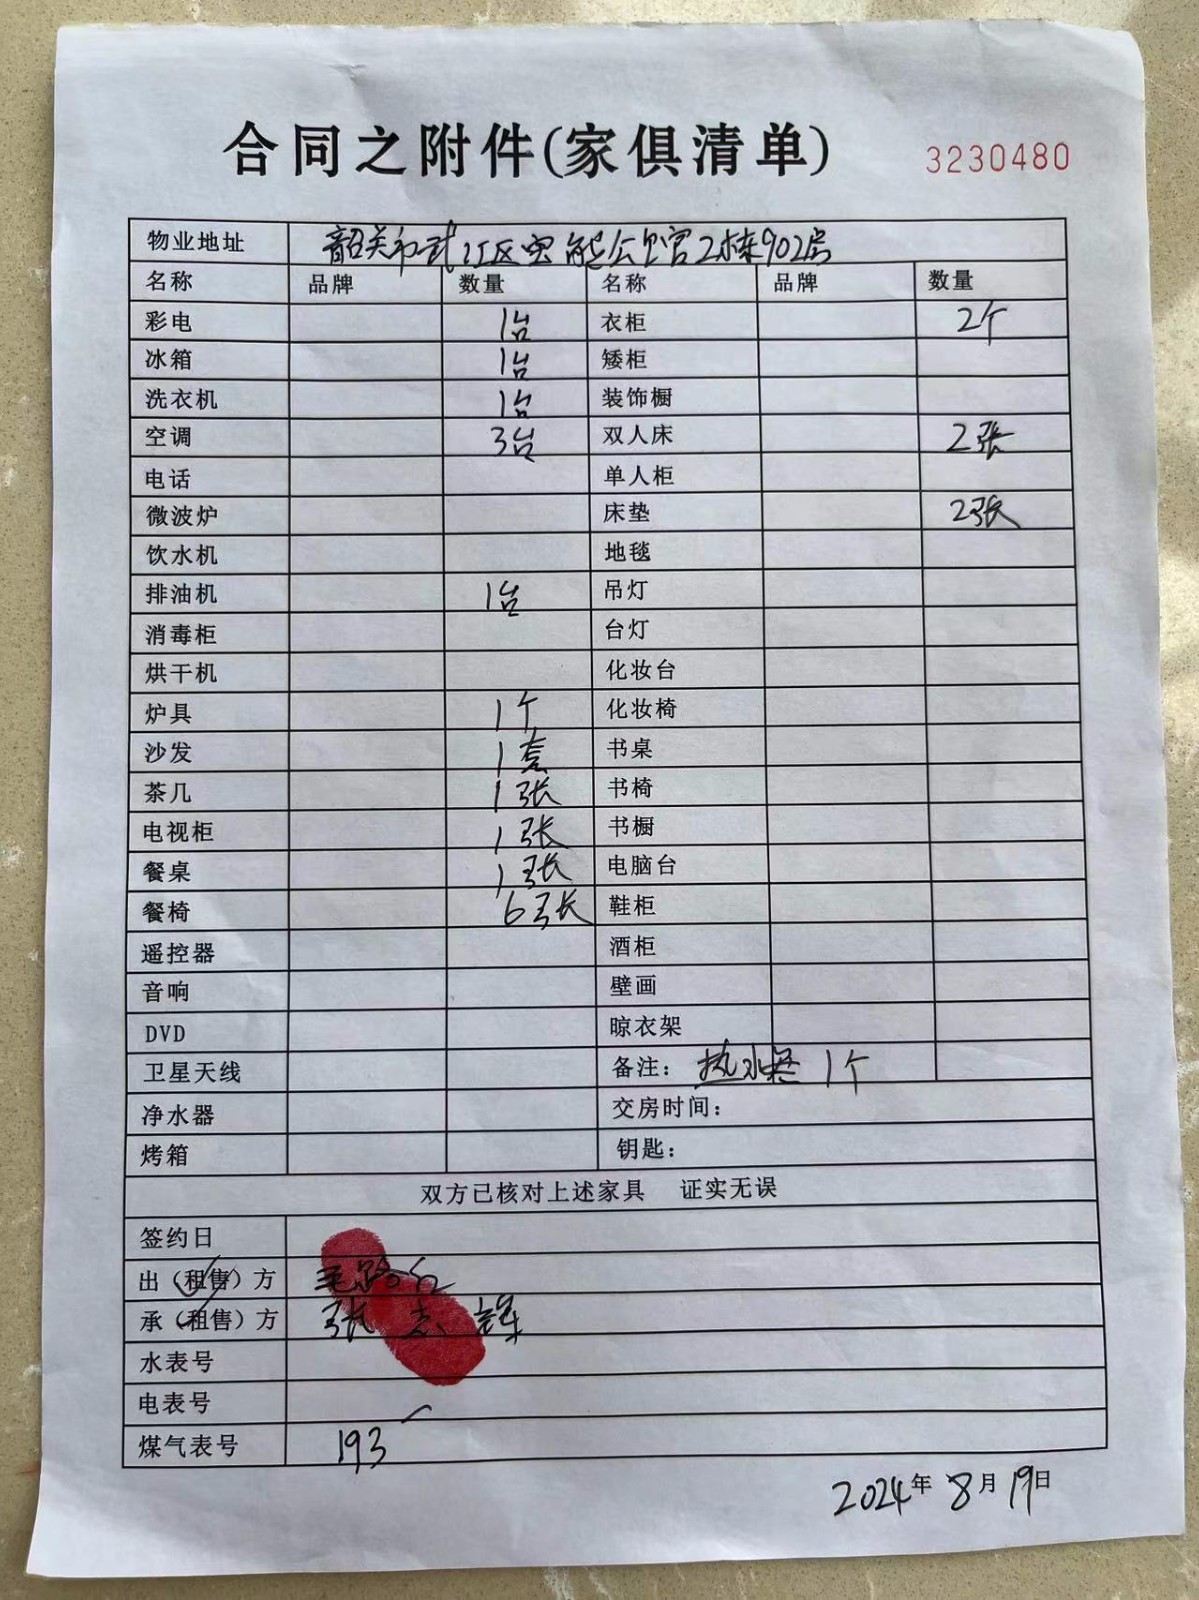 合同之附件(家俱清单) 3230480
物业地址 韶关市武江区宝能公馆2栋902房
名称 品牌 数量 名称 品牌 数量
彩电 1台 衣柜 2个
冰箱 1台 矮柜
洗衣机 1台 装饰橱
空调 3台 双人床 2张
电话 单人柜
微波炉 床垫 2张
饮水机 地毯
排油机 1台 吊灯
消毒柜 台灯
烘干机 化妆台
炉具 1个 化妆椅
沙发 1套 书桌
茶几 1张 书椅
电视柜 1张 书橱
餐桌 1张 电脑台
餐椅 6张 鞋柜
遥控器 酒柜
音响 壁画
DVD 晾衣架
卫星天线 备注： 热水器 1个
净水器 交房时间：
烤箱 钥匙：
双方已核对上述家具 证实无误
签约日
出（租售）方
承（租售）方 张志辉
水表号
电表号
煤气表号 193
2024年8月19日